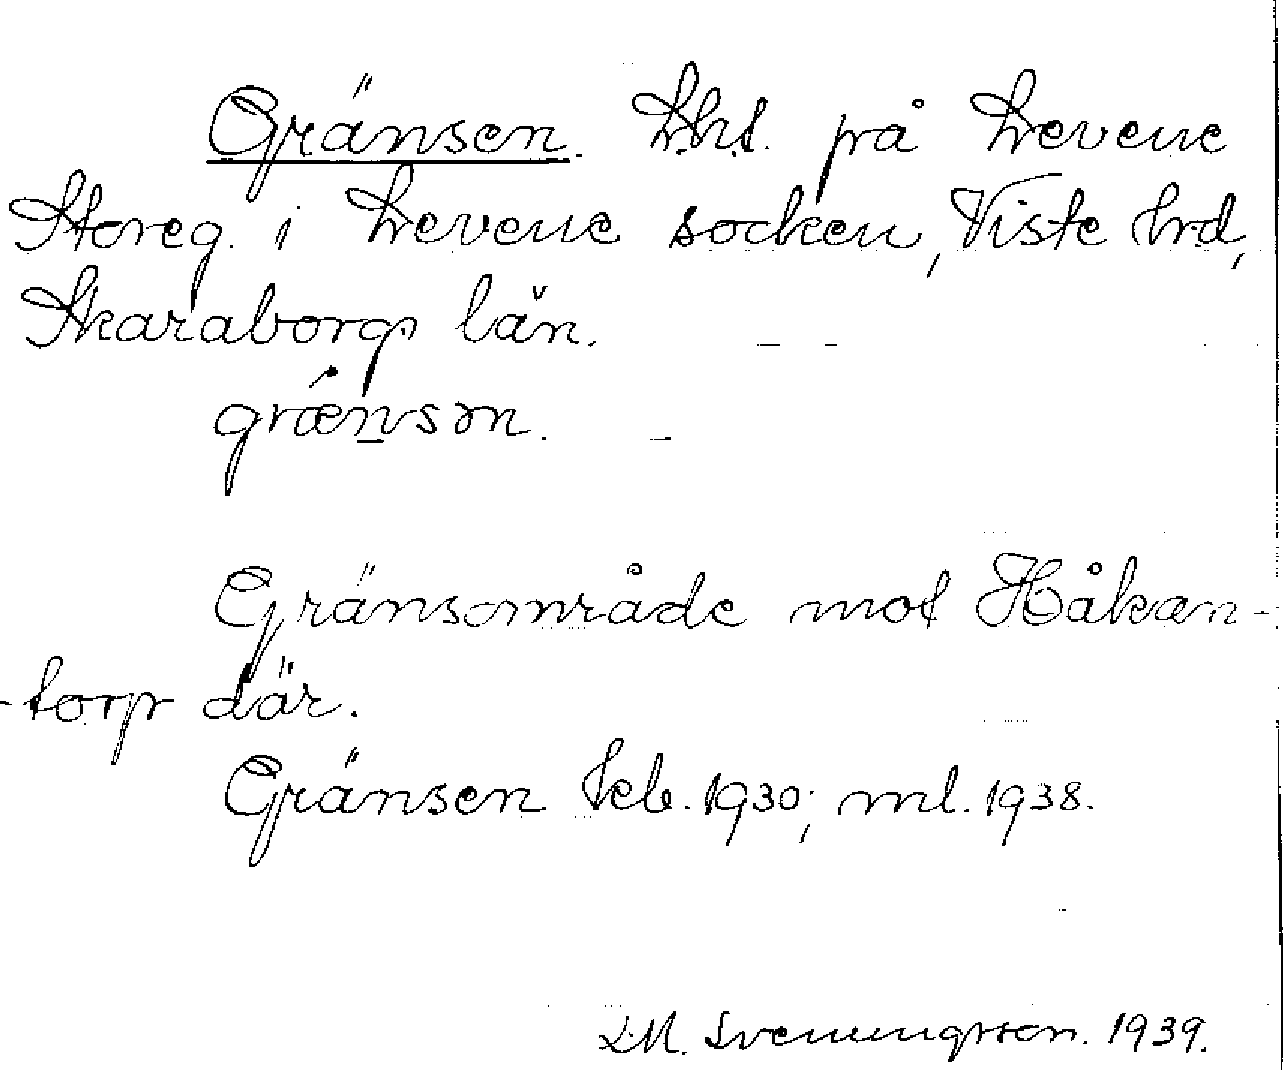 Gränsen. Lht. på Levene
Storeg. i Levene socken, Viste hrd,
Skaraborgs län.
grænsən.
Gränsområde mot Håkan-
-torp där.
Gränsen kb. 1930; ml. 1938.
LM. Svenungsson. 1939.